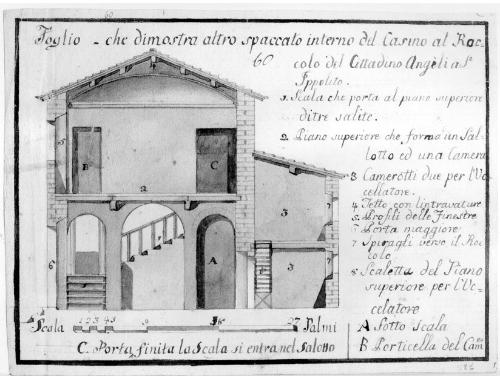 Foglio - che dimostra altro spaccato interno del Casino al Roc-
60
colo del Cittadino Angeli a S.
Ippolito.
1. Scala che porta al piano superiore
di tre salite.
2. Piano superiore che forma un Sal-
lotto ed una Camera
3 Camerotti due per l'Uc-
cellatore.
4 Tetto con l'intravature
5. Profili delle Finestre
6 Porta maggiore
7 Spiragli verso il Roc-
colo
8 Scaletta del Piano
superiore per l'Uc-
cellatore
A Sotto Scala
B Porticella del Cam
B
C
2
3
7
6
A
8
3
7
Scala
1 2 3 4 5
9
27 Palmi
C. Porta, finita la Scala si entra nel Salotto